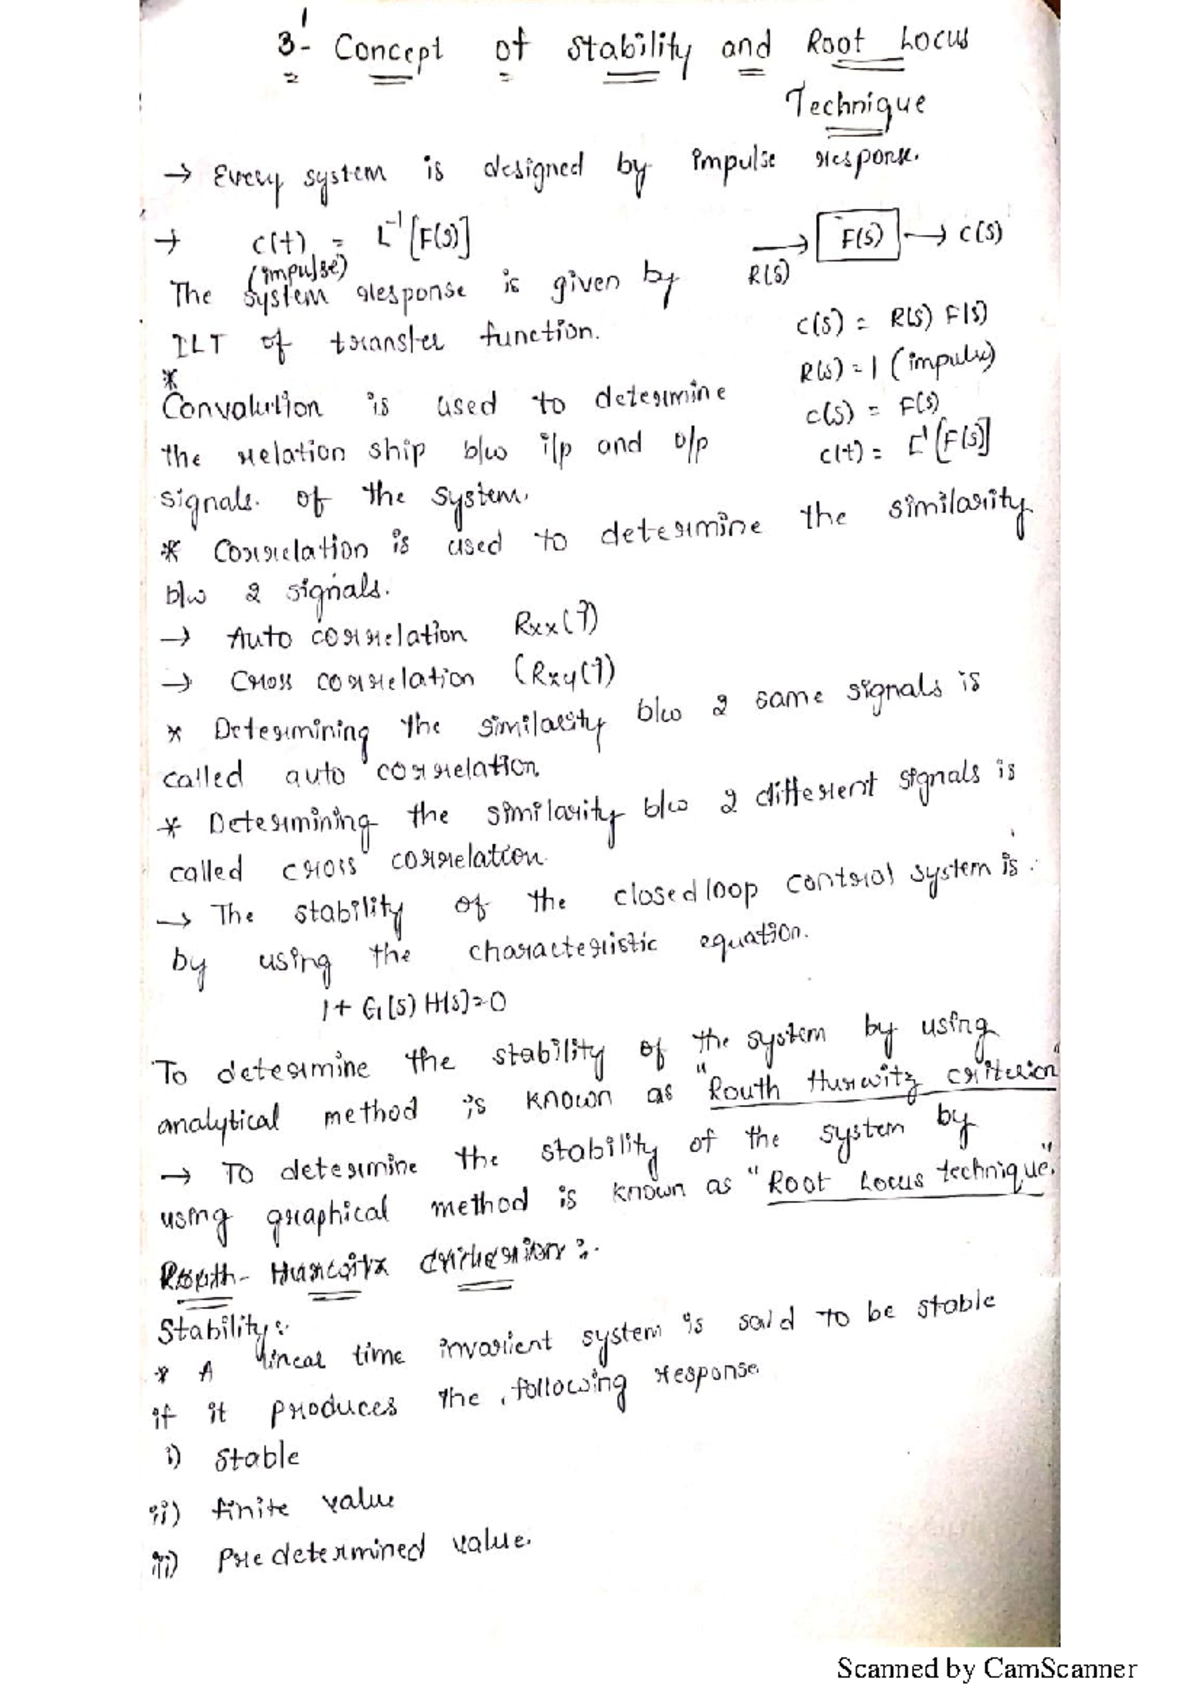 3- Concept of Stability and Root Locus
Technique
→ Every system is designed by impulse response.
→ c(t) = L⁻¹[F(s)]
(impulse)
R(s) → F(s) → C(s)
The system response is given by
ILT of transfer function.
C(s) = R(s) F(s)
R(s) = 1 (impulse)
C(s) = F(s)
c(t) = L⁻¹[F(s)]
* Convolution is used to determine
the relation ship b/w i/p and o/p
signals. of the system.
* Correlation is used to determine the similarity
b/w 2 signals.
→ Auto correlation Rxx(τ)
→ Cross correlation (Rxy(τ)
* Determining the similarity b/w 2 same signals is
called auto correlation
* Determining the similarity b/w 2 different signals is
called cross correlation.
→ The stability of the closed loop control system is
by using the characteristic equation.
1+ G(s) H(s)=0
To determine the stability of the system by using
analytical method is known as "Routh Hurwitz criterion"
→ To determine the stability of the system by
using graphical method is known as "Root Locus technique."
Routh- Hurwitz Criterion:-
Stability:-
* A linear time invarient system is said to be stable
if it produces the following response
i) Stable
ii) finite value
iii) Pre determined value.
Scanned by CamScanner